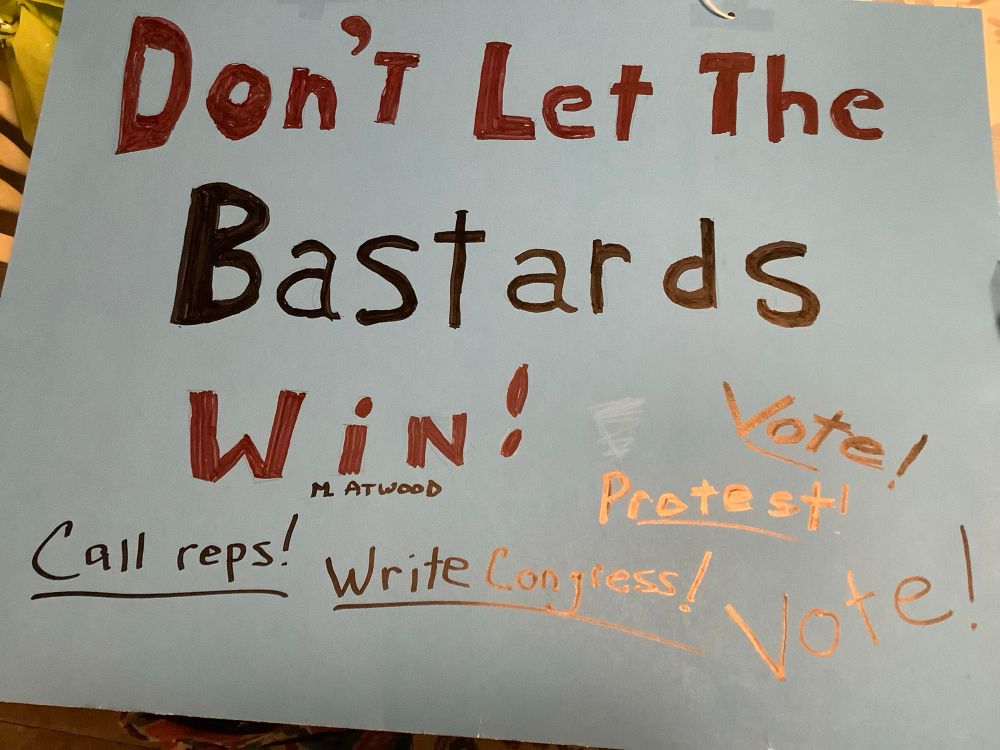 Don't Let The
Bastards
Win!
M. ATWOOD
Vote!
Protest!
Call reps!
Write Congress!
Vote!